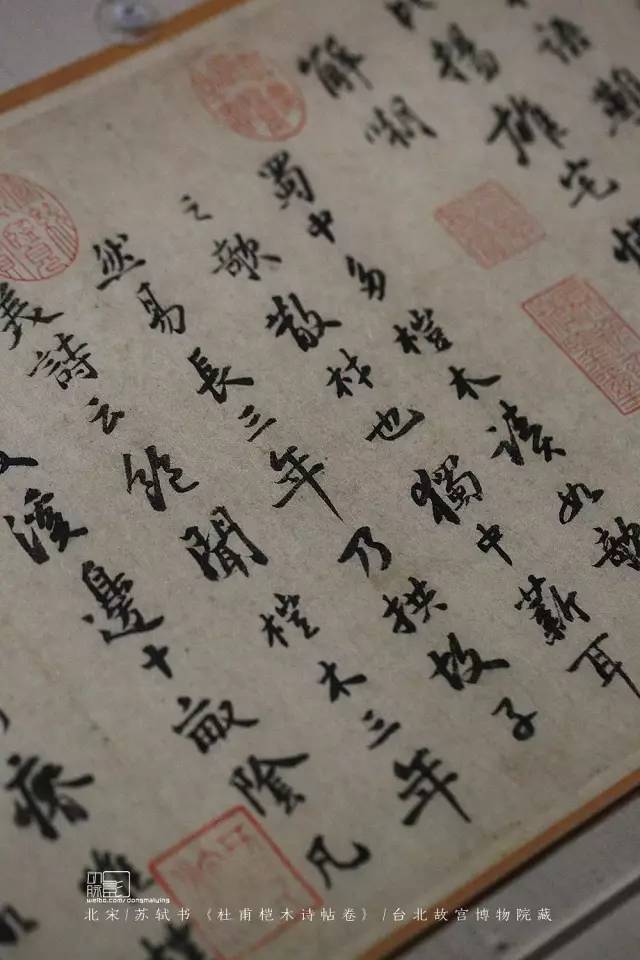 語
揚雄宅
解嘲
蜀中多榿木讀如欹
之欹散材也獨中薪耳
然易長三年乃拱故子
美詩云飽聞榿木三年
溪邊十畝陰凡
瘠惟
weibo.com/dongmaiying
北宋/苏轼书《杜甫桤木诗帖卷》/台北故宫博物院藏